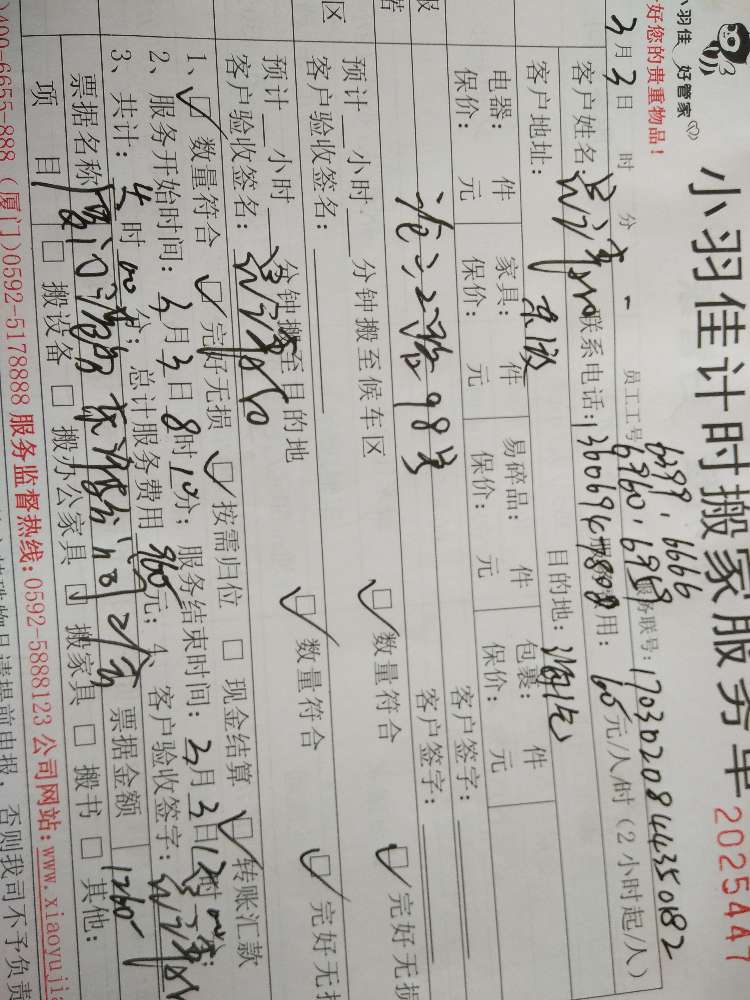 小羽佳 好管家
好您的贵重物品！
小羽佳计时搬家服务单
2025447
3月3日 时 分 员工工号: 6399, 6666
6960, 6959 服务联号: 1703020844350182
客户姓名: 联系电话: 服务费用: 60元/人/时（2小时起/人）
客户地址: 目的地:
电器: 件 家具: 件 易碎品: 件 包裹: 件 客户签字:
保价: 元 保价: 元 保价: 元 保价: 元 客户签字:
98号
预计 小时 分钟搬至候车区 数量符合 完好无损
客户验收签名:
预计 小时 分钟搬至目的地 数量符合 完好无损
客户验收签名:
1、 数量符合 完好无损 按需归位 现金结算 转账汇款
2、服务开始时间: 3月3日8时10分; 服务结束时间: 3月3日12时00分;
3、共计: 4时00分; 总计服务费用960元; 4、客户验收签字:
票据名称 票据金额 1260
项目 搬设备 搬办公家具 搬家具 搬书 其他:
400-6655-888（厦门)0592-5178888 服务监督热线:0592-5888123 公司网站:www.xiaoyujia
物品请提前申报，否则我司不予负责